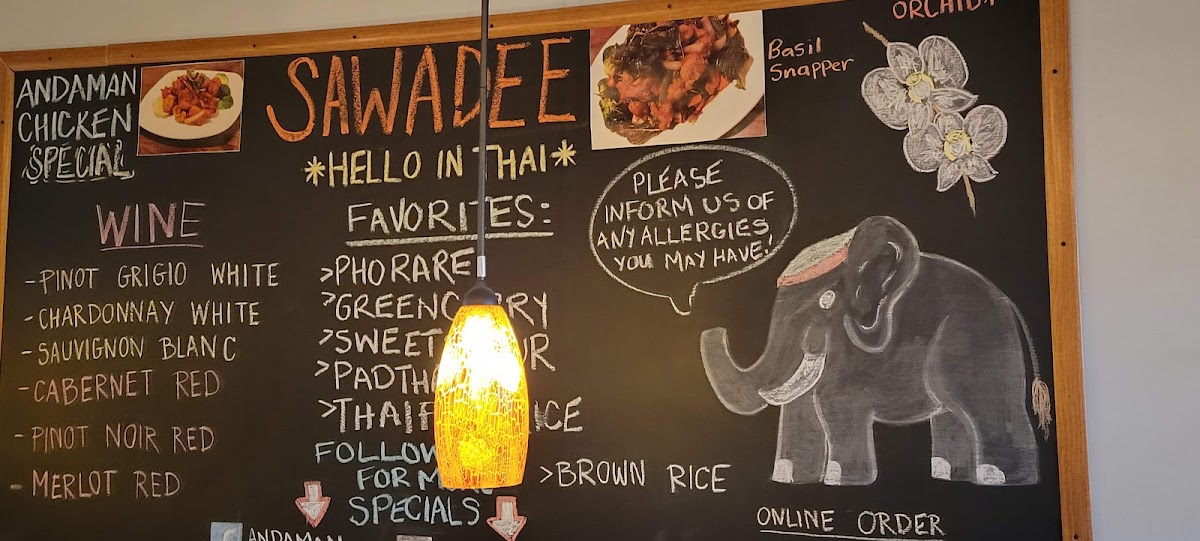 ANDAMAN
CHICKEN
SPECIAL
SAWADEE
*HELLO IN THAI*
Basil
Snapper
WINE
-PINOT GRIGIO WHITE
-CHARDONNAY WHITE
-SAUVIGNON BLANC
-CABERNET RED
-PINOT NOIR RED
-MERLOT RED
FAVORITES:
>PHO RARE
>GREEN
>SWEET
>
>THAI
FOLLOW
FOR
SPECIALS
>BROWN RICE
PLEASE
INFORM US OF
ANY ALLERGIES
YOU MAY HAVE!
ONLINE ORDER
ANDAMAN